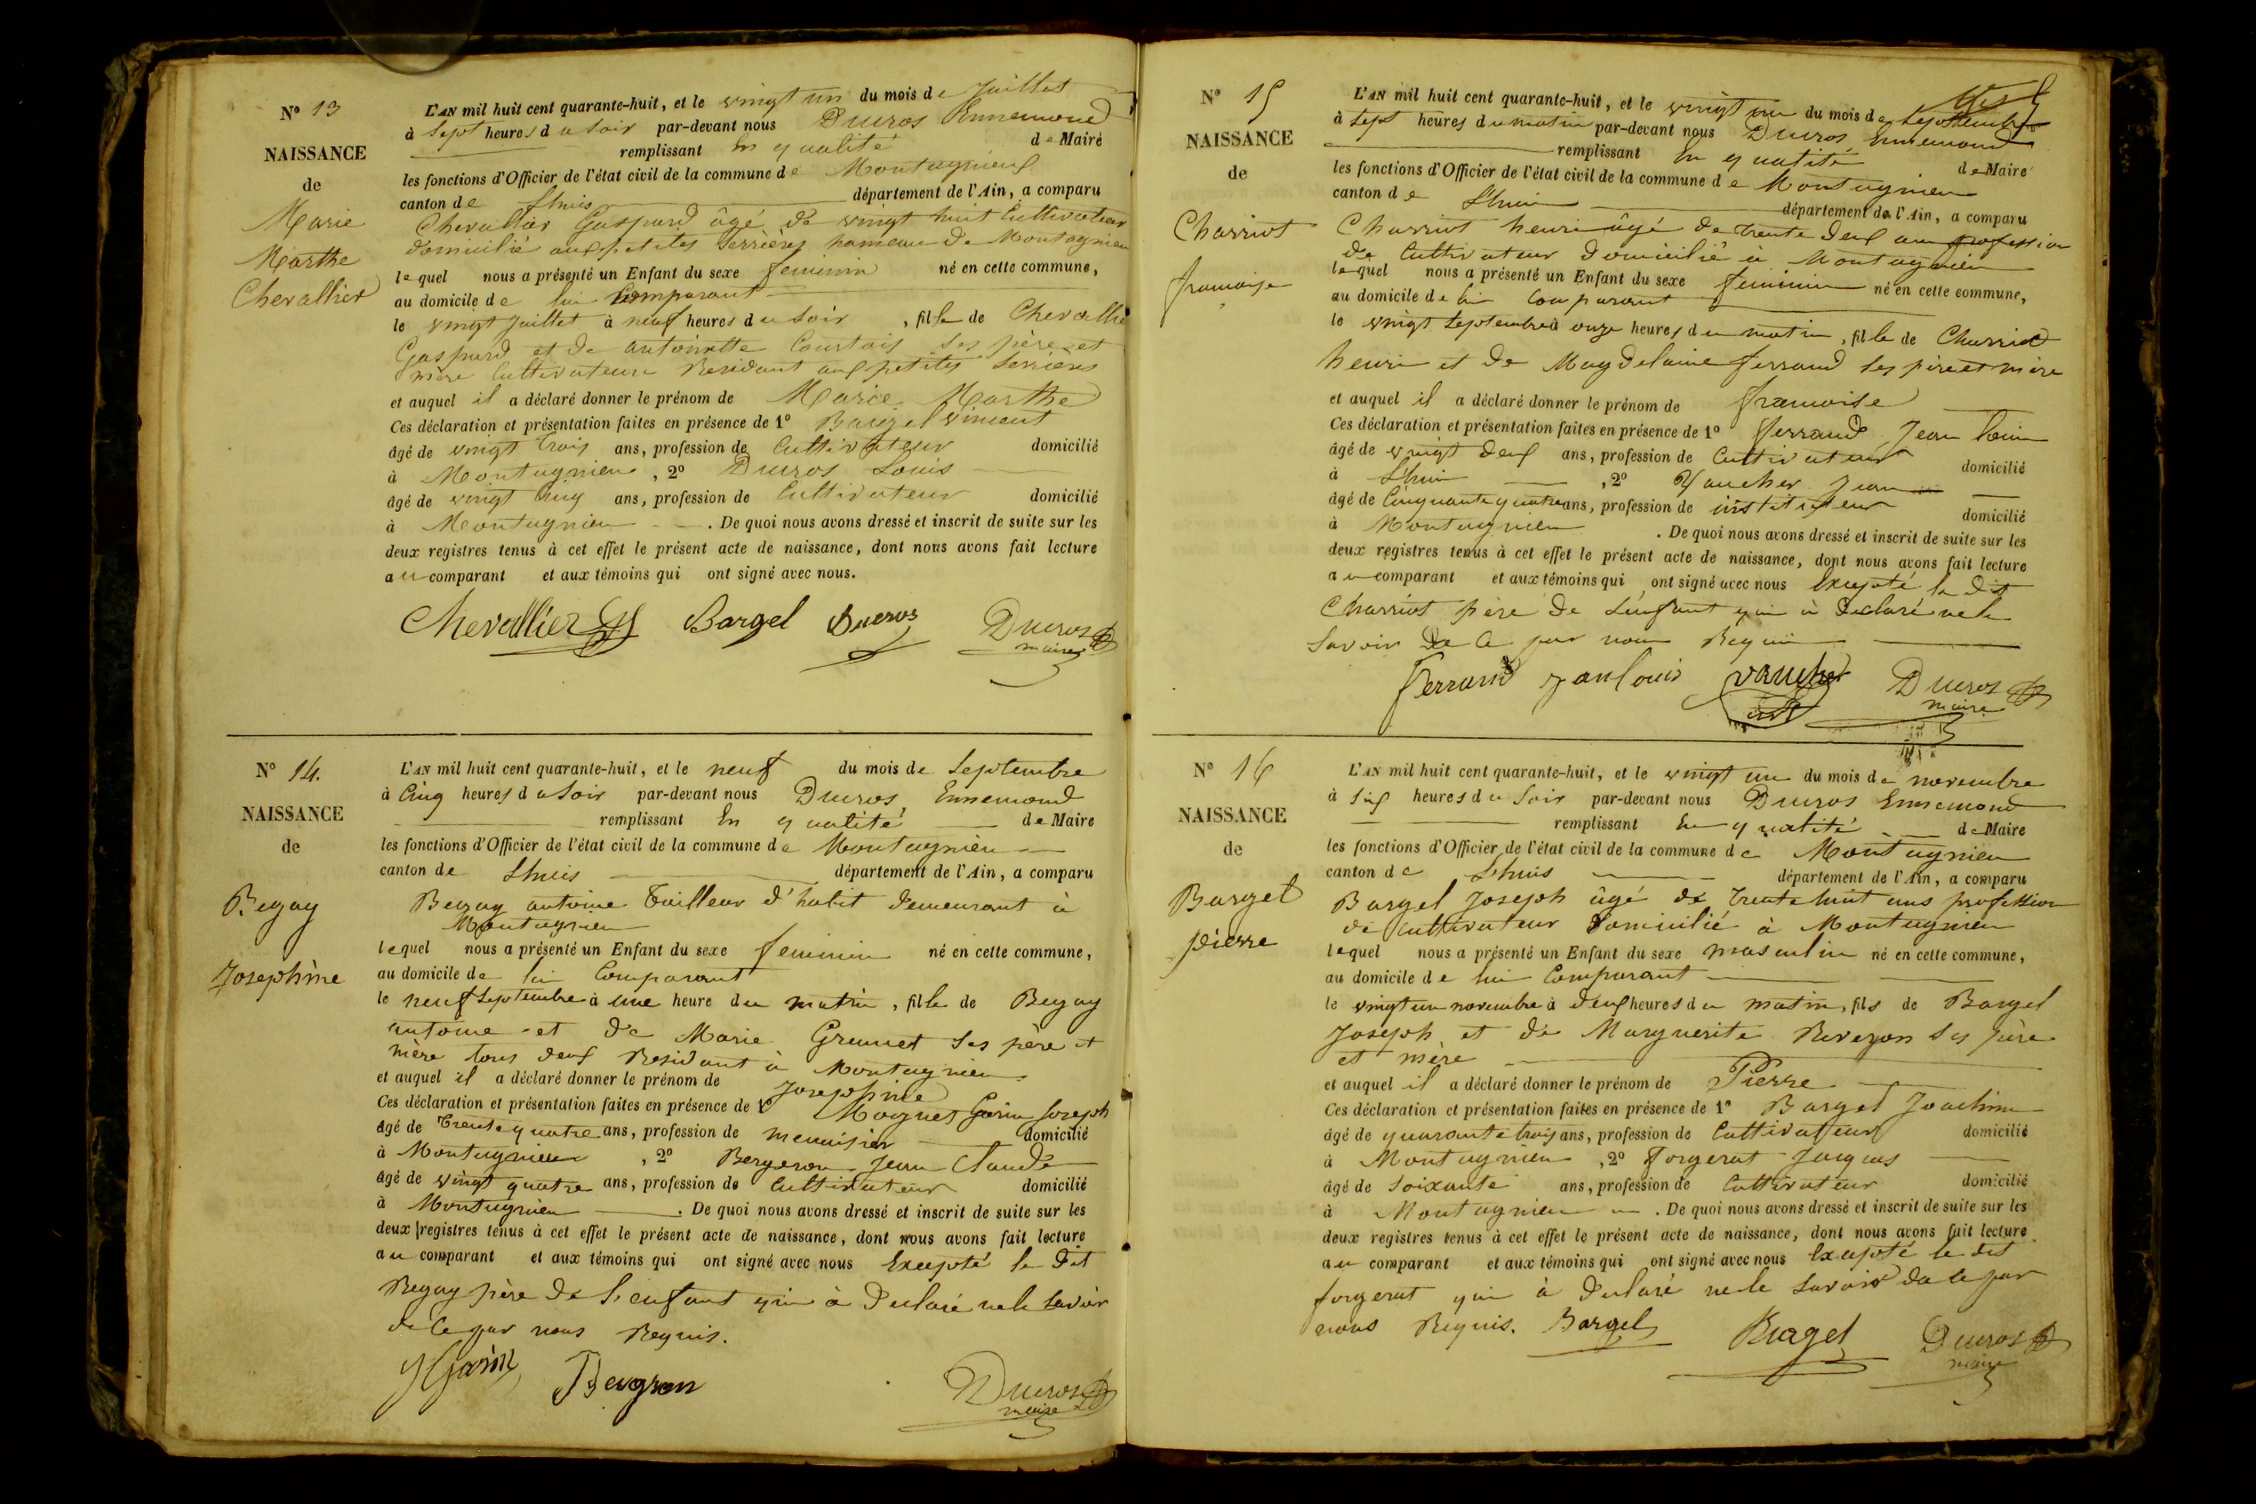 N° 13
NAISSANCE
de
Marie
Marthe
Chevallier
L'AN mil huit cent quarante-huit, et le vingt un du mois de Juillet
à sept heures du soir par-devant nous Ducros Ennemond
remplissant En qualité de Maire
les fonctions d'Officier de l'état civil de la commune de Montagnieu
canton de Lhuis département de l'Ain, a comparu
Chevallier Gaspard âgé de vingt huit Cultivateur
domicilié aux petites Serrières hameau de Montagnieu
lequel nous a présenté un Enfant du sexe feminin né en cette commune,
au domicile de lui Comparant
le vingt Juillet à neuf heures du soir, fille de Chevallier
Gaspard et de antoinette Courtois ses père et
mère Cultivateurs Residant aux petites Serrières
et auquel il a déclaré donner le prénom de Marie Marthe
Ces déclaration et présentation faites en présence de 1° Bargel vincent
âgé de vingt trois ans, profession de Cultivateur domicilié
à Montagnieu, 2° Ducros Louis
âgé de vingt Cinq ans, profession de Cultivateur domicilié
à Montagnieu. De quoi nous avons dressé et inscrit de suite sur les
deux registres tenus à cet effet le présent acte de naissance, dont nous avons fait lecture
au comparant et aux témoins qui ont signé avec nous.
Chevallier Bargel Ducros Ducros
maire
N° 14.
NAISSANCE
de
Begay
Josephine
L'AN mil huit cent quarante-huit, et le neuf du mois de Septembre
à Cinq heures du soir par-devant nous Ducros, Ennemond
remplissant En qualité de Maire
les fonctions d'Officier de l'état civil de la commune de Montagnieu
canton de Lhuis département de l'Ain, a comparu
Begay antoine tailleur d'habit demeurant à
Montagnieu
lequel nous a présenté un Enfant du sexe feminin né en cette commune,
au domicile de lui Comparant
le neuf Septembre à une heure du matin, fille de Begay
antoine et de Marie Grumet ses père et
mère tous deux Residant à Montagnieu
et auquel il a déclaré donner le prénom de Josephine
Ces déclaration et présentation faites en présence de 1° Garin Joseph
âgé de trente quatre ans, profession de menuisier domicilié
à Montagnieu, 2° Bergeron Jean Claude
âgé de vingt quatre ans, profession de Cultivateur domicilié
à Montagnieu. De quoi nous avons dressé et inscrit de suite sur les
deux registres tenus à cet effet le présent acte de naissance, dont nous avons fait lecture
au comparant et aux témoins qui ont signé avec nous Excepté le dit
Begay père de L'enfant qui à Declaré ne le savoir
de ce par nous Requis.
JGarin Bergron Ducros
maire
N° 15
NAISSANCE
de
Charriot
francoise
L'AN mil huit cent quarante-huit, et le vingt un du mois de Septembre
à sept heures du matin par-devant nous Ducros, Ennemond
remplissant En qualité de Maire
les fonctions d'Officier de l'état civil de la commune de Montagnieu
canton de Lhuis département de l'Ain, a comparu
Charriot henri âgé de trente deux ans profession
de Cultivateur domicilié à Montagnieu
lequel nous a présenté un Enfant du sexe feminin né en cette commune,
au domicile de lui Comparant
le vingt Septembre à onze heures du matin, fille de Charriot
henri et de Magdelaine ferrand ses père et mère
et auquel il a déclaré donner le prénom de francoise
Ces déclaration et présentation faites en présence de 1° ferrand Jean louis
âgé de vingt deux ans, profession de Cultivateur domicilié
à Lhuis, 2° Vaucher Jean
âgé de Cinquante quatre ans, profession de instituteur domicilié
à Montagnieu. De quoi nous avons dressé et inscrit de suite sur les
deux registres tenus à cet effet le présent acte de naissance, dont nous avons fait lecture
au comparant et aux témoins qui ont signé avec nous Excepté le dit
Charriot père de L'enfant qui à declaré ne le
savoir de ce par nous Requi
ferrand Jan louis vaucher Ducros
maire
N° 16
NAISSANCE
de
Bargel
pierre
L'AN mil huit cent quarante-huit, et le vingt un du mois de novembre
à six heures du soir par-devant nous Ducros Ennemond
remplissant En qualité de Maire
les fonctions d'Officier de l'état civil de la commune de Montagnieu
canton de Lhuis département de l'Ain, a comparu
Bargel Joseph âgé de trente huit ans profession
de cultivateur domicilié à Montagnieu
lequel nous a présenté un Enfant du sexe masculin né en cette commune,
au domicile de lui Comparant
le vingt un novembre à deux heures du matin, fils de Bargel
Joseph et de Marguerite Reveyron ses père
et mère
et auquel il a déclaré donner le prénom de Pierre
Ces déclaration et présentation faites en présence de 1° Bargel Joachim
âgé de quarante trois ans, profession de Cultivateur domicilié
à Montagnieu, 2° forgerat Jacques
âgé de soixante ans, profession de Cultivateur domicilié
à Montagnieu. De quoi nous avons dressé et inscrit de suite sur les
deux registres tenus à cet effet le présent acte de naissance, dont nous avons fait lecture
au comparant et aux témoins qui ont signé avec nous Excepté le dit
forgerat qui à declaré ne le savoir de ce par
nous Requis. Bargel Bargel Ducros
maire